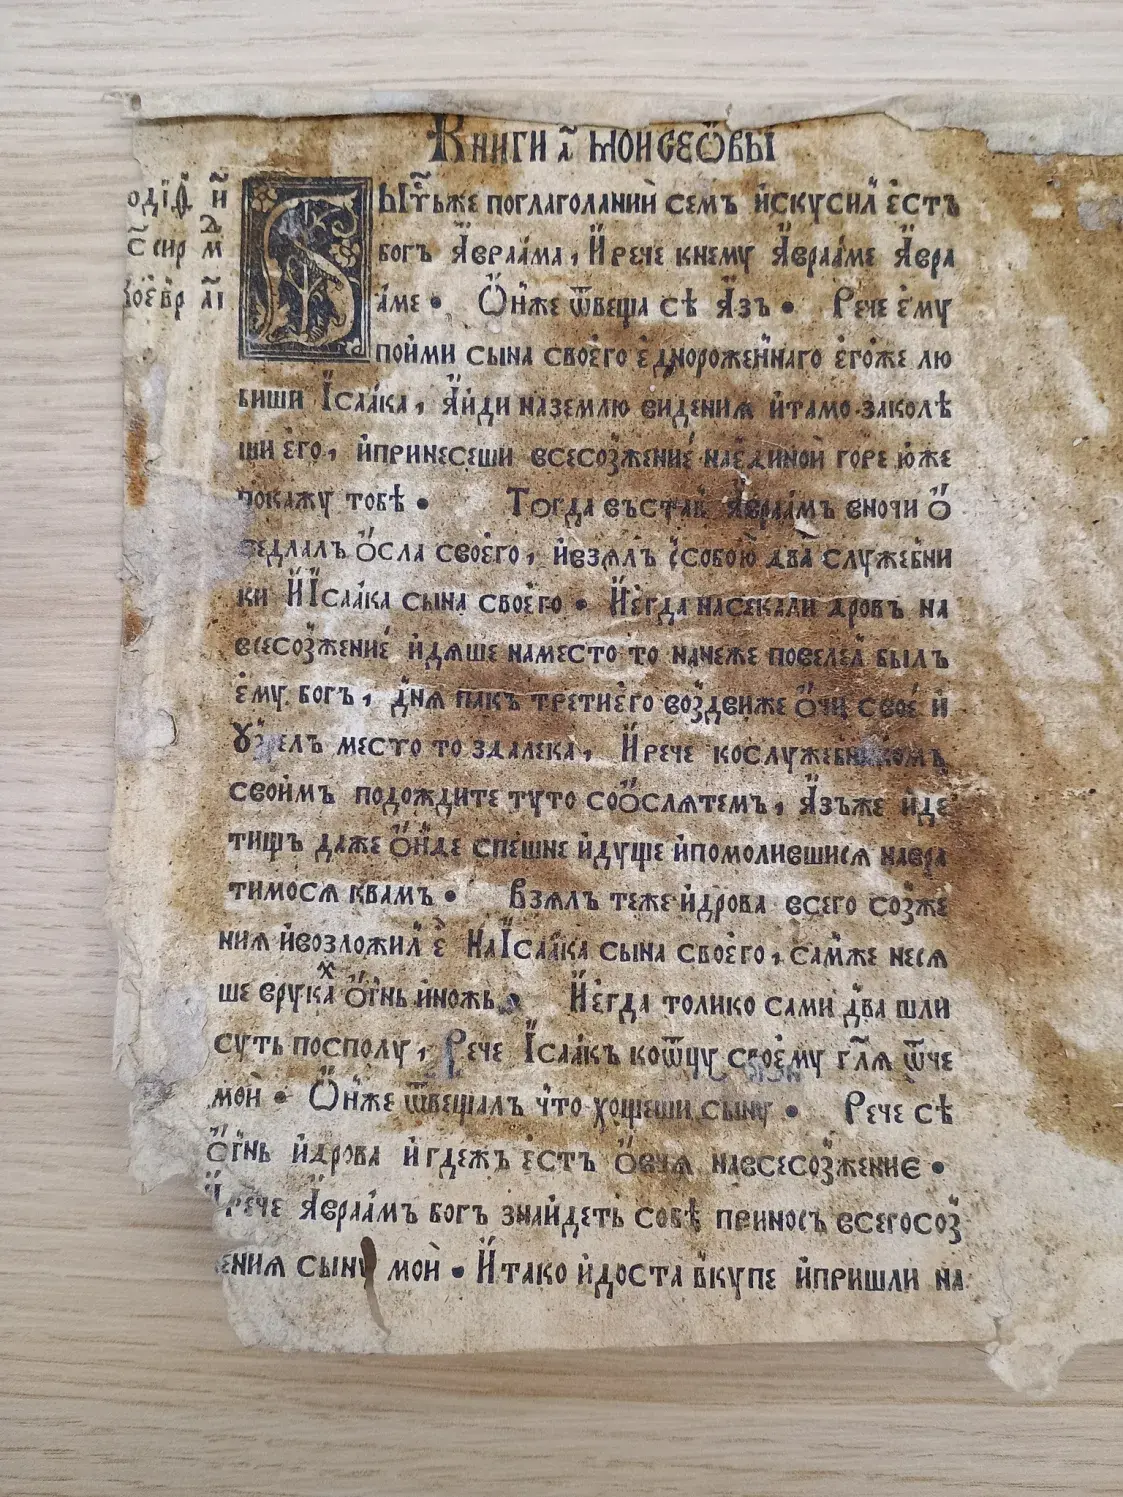 Книги а҃ моисеѡвы
одїѳ и҃
с҃ сир м҃д
коевр аі
Бы́тъже поглаголании семъ искусил есть
богъ Авраама, И рече кнему Аврааме Авра
аме • Ѻнже ѿвеща се Азъ • Рече ему
поими сына своего еднороженнаго егоже лю
биши Ісаака, Аиди наземлю видения итамо заколѣ
ши его, ипринесеши всесозжение наединои горе юже
покажу тобѣ • Тогда въстав Авраамъ вночи ѻ
седлалъ ѻсла своего, ивзялъ ссобою два служебни
ки И Ісаака сына своего • Иегда насекали дровъ на
всесозжение идяше наместо то нанеже повелел былъ
ему богъ, дня пакъ третиего воздвиже ѻчи свое и
узрелъ место то здалека, И рече кослужебникомъ
своимъ подождите туто соѻслятемъ, Азъже иде
тищъ даже ѻнде спешне идуще ипомолившися навра
тимося квамъ • Взялъ теже идрова всего созже
ния ивозложил е На Ісаака сына своего, самже нося
ше вруках ѻгнь иножъ • Иегда толико сами два шли
суть посполу, Рече Ісаакъ коѿцу своему гл҃я ѿче
мои • Ѻнже ѿвещалъ что хощеши сыну • Рече се
ѻгнь идрова игдежъ есть ѻвчя навсесозжение •
И рече Авраамъ богъ знаидеть собѣ приносъ всегосоз
ения сыну мои • И тако идоста вкупе ипришли на